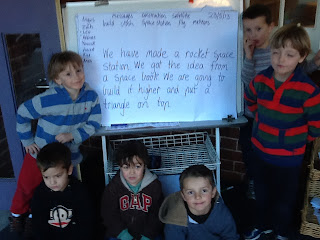 messages celebration satellite
build Space station fly meteors
We have made a rocket Space
Station. We got the idea from
a Space book. We are going to
build it higher and put a
triangle on top.
GAP